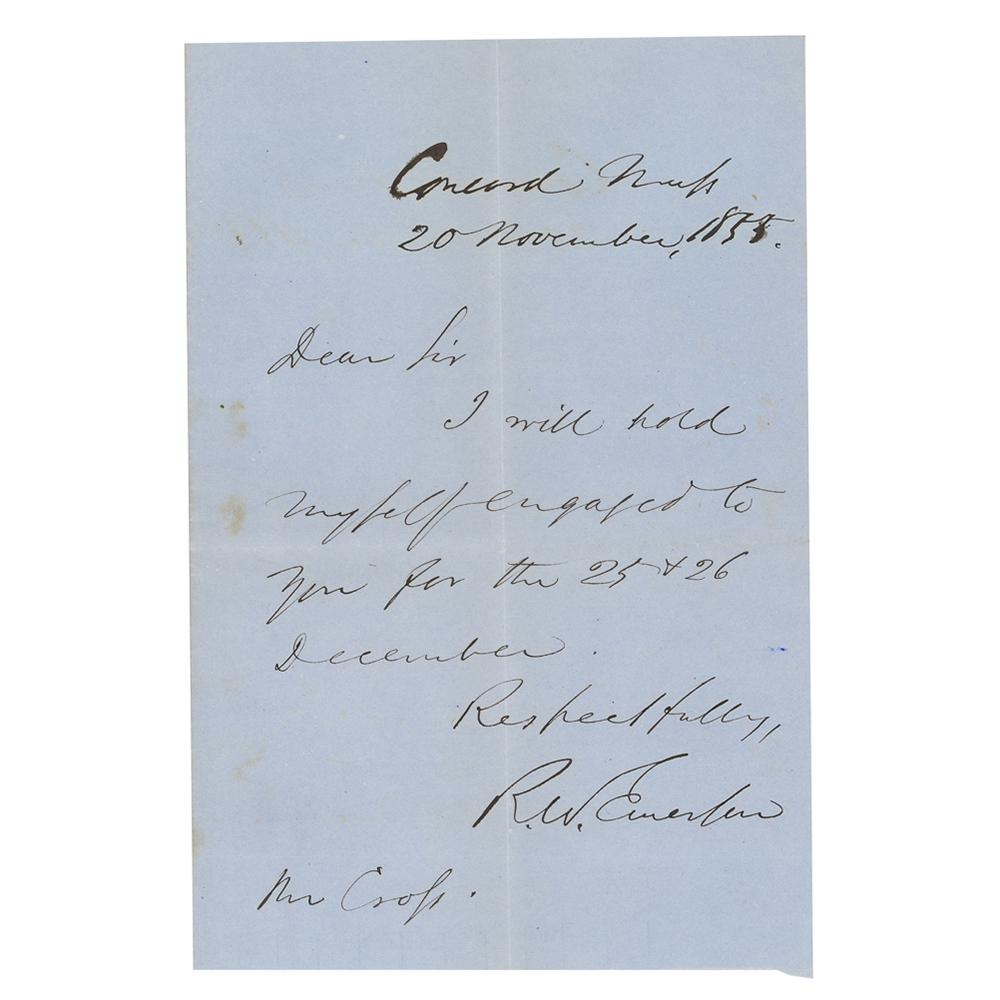 Concord Mass
20 November, 1855.
Dear Sir
I will hold
myself engaged to
you for the 25 & 26
December.
Respectfully,
R. W. Emerson
Mr Cross.